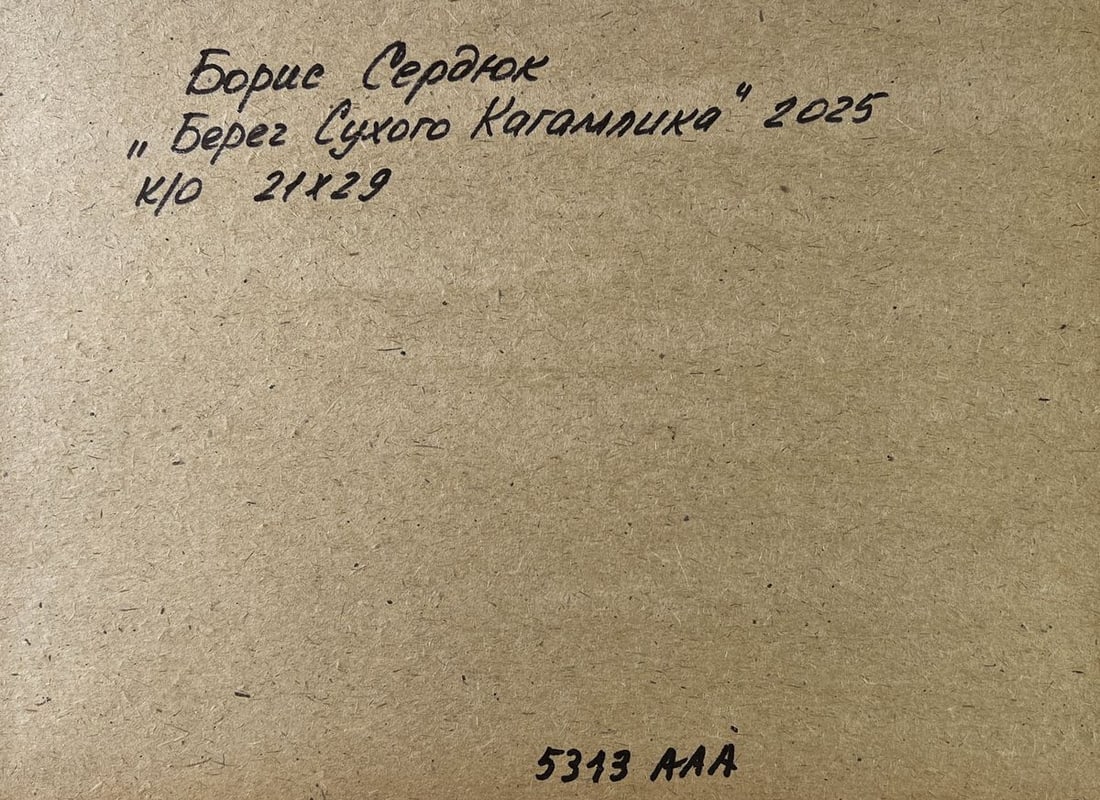 Борис Сердюк
„Берег Сухого Кагамлика" 2025
К/О 21х29
5313 ААА